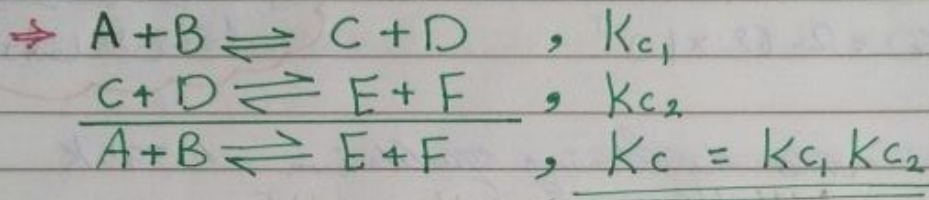 ⇒ A + B ⇌ C + D , Kc₁
C + D ⇌ E + F , Kc₂
A + B ⇌ E + F , Kc = Kc₁ Kc₂